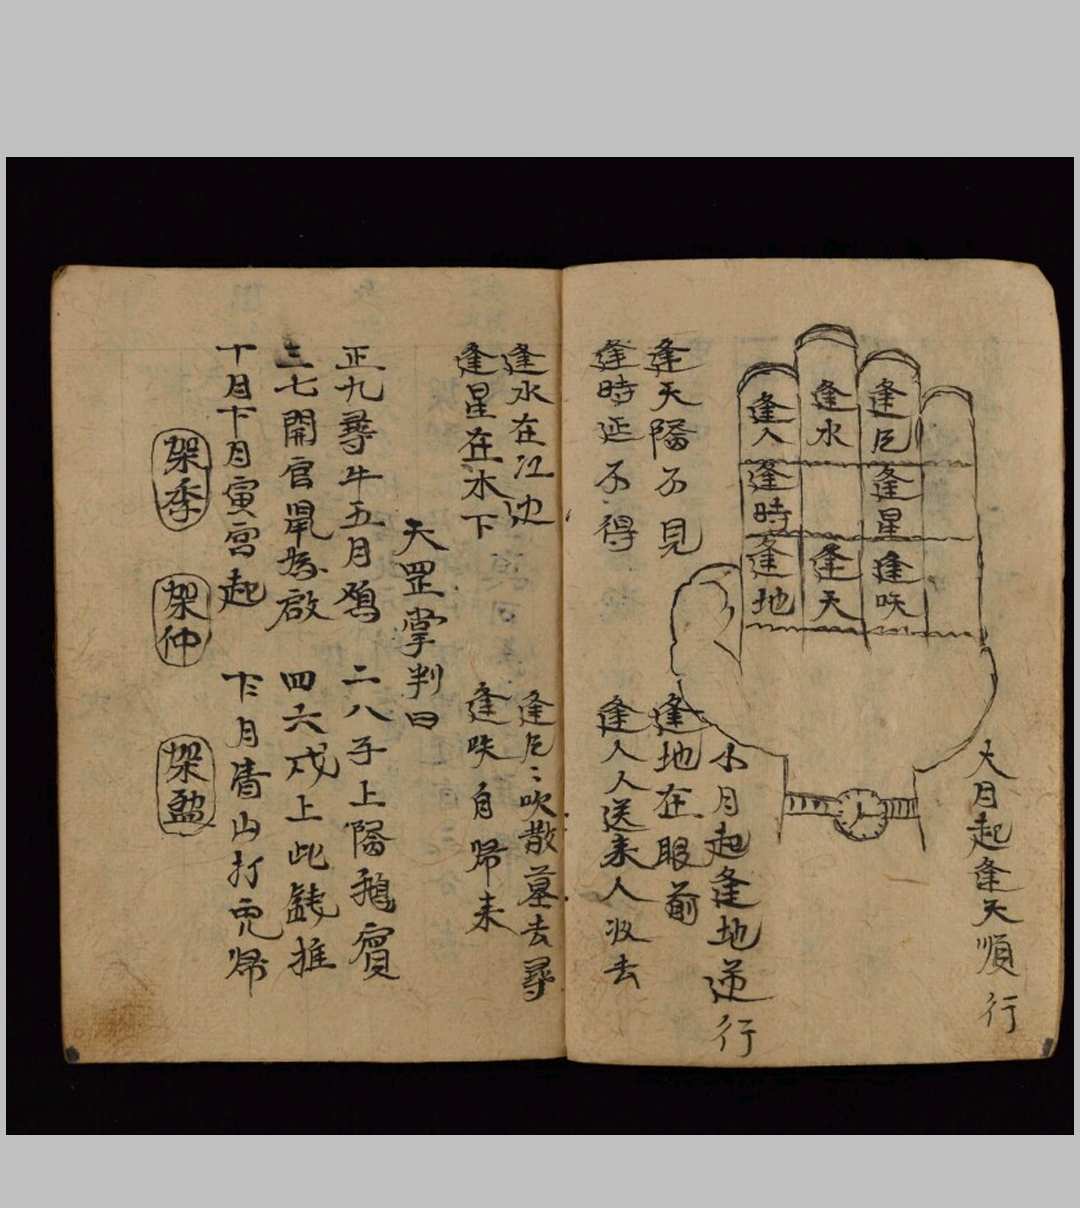 大月起逢天順行
逢人
逢水
逢時
逢星
逢地
逢天
逢咲
小月起逢地逆行
逢天隔不見
逢地在眼前
逢時延不得
逢人人送来人收去
逢水在江边
吹散墓去尋
逢星在木下
逢咲自帰来
天罡掌判曰
正九尋牛五月鸡
二八子上隔
三七開官
四六戌上此
推
十月
月寅宮起
月
山打
帰
架季
架仲
架盈